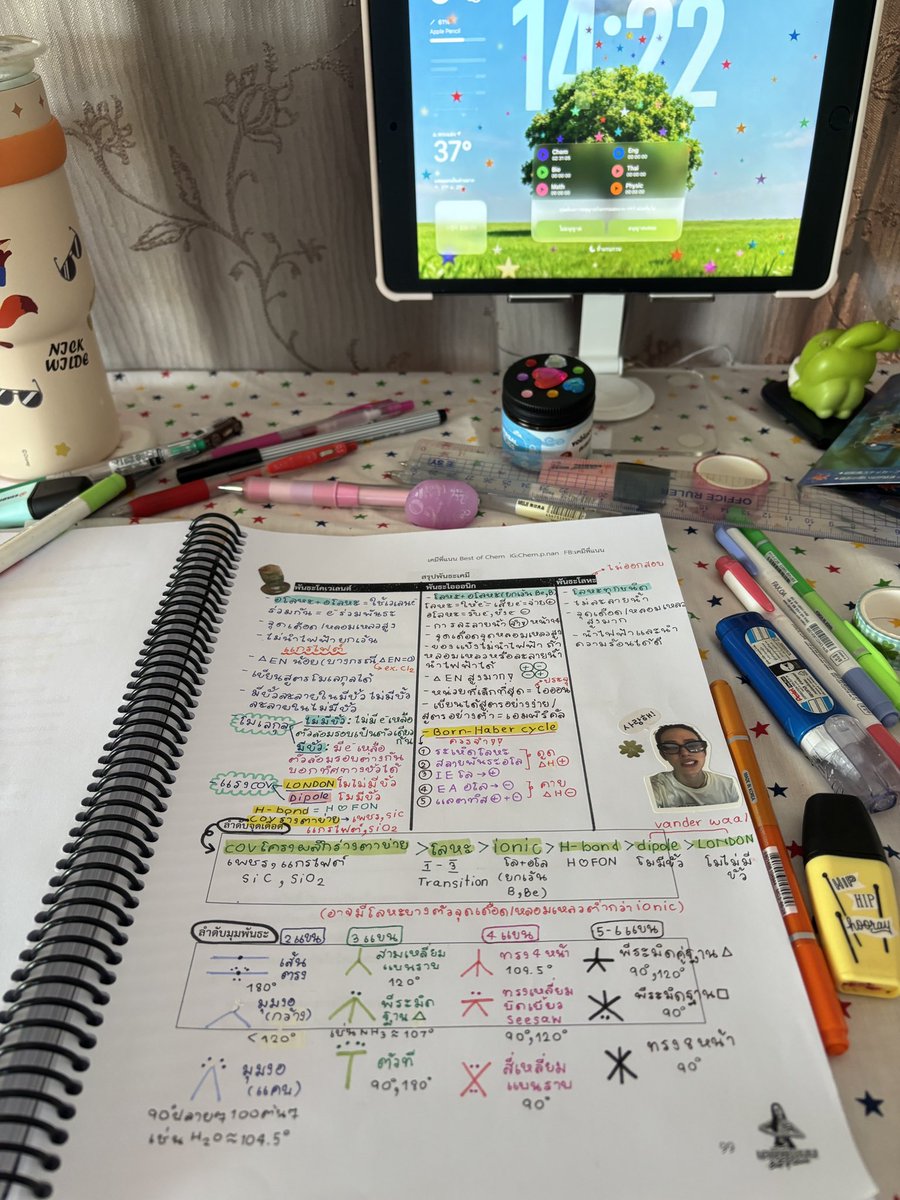 61%
Apple Pencil
14:22
37°
Chem
02:31:05
Eng
00:00:00
Bio
00:00:00
Thai
00:00:00
Math
00:00:00
Physic
00:00:00
NICK
WILDE
OFFICE RULER
HIP
HIP
hooray
เคมีพี่แนน Best of Chem IG:Chem.p.nan FB:เคมีพี่แนน
สรุปพันธะเคมี
ไม่ออกสอบ
พันธะโคเวเลนต์
- อโลหะ + อโลหะ = ใช้เวเลนซ์
ร่วมกัน = e⁻ ร่วมพันธะ
- จุดเดือด/หลอมเหลวสูง
- ไม่นำไฟฟ้ายกเว้น
แกรไฟต์
- ΔEN น้อย (บางกรณี ΔEN=0)
ex. Cl₂
- เขียนสูตรโมเลกุลได้
- มีขั้วละลายในมีขั้ว ไม่มีขั้ว
ละลายในไม่มีขั้ว
โมเลกุล
ไม่มีขั้ว : ไม่มี e⁻ เหลือ
ตัวล้อมรอบเป็นตัวเดียวกัน
มีขั้ว : มี e⁻ เหลือ
ตัวล้อมรอบต่างกัน
บอกทิศทางขั้วได้
แรง cov
LONDON โมไม่มีขั้ว
Dipole โมมีขั้ว
H-bond = H♡FON
cov ร่างตาข่าย → เพชร, sic
แกรไฟต์, SiO₂
พันธะไอออนิก
- โลหะ + อโลหะ (ยกเว้น Be, B)
โลหะ = ให้ e⁻ = เสีย e⁻ = จ่าย ⊕
อโลหะ = รับ e⁻, ชิง e⁻ ⊖
- การละลายน้ำ
- จุดเดือดจุดหลอมเหลวสูง
- ของแข็งไม่นำไฟฟ้า ถ้า
หลอมเหลวหรือละลายน้ำ
นำไฟฟ้าได้
- ΔEN สูงมากๆ
- หน่วยที่เล็กที่สุด = ไอออน
ประจุ
- เขียนได้สูตรอย่างง่าย/
สูตรอย่างต่ำ = เอมพิริคัล
- Born-Haber cycle
① ระเหิดโลหะ
② สลายพันธะอโล
③ IE โล → ⊕
④ EA อโล → ⊖
⑤ แลตทิส ⊕ + ⊖
ดูด
ΔH ⊕
คาย
ΔH ⊖
พันธะโลหะ
โลหะทุกชนิด
- ไม่ละลายน้ำ
- จุดเดือด/หลอมเหลว
สูงมาก
- นำไฟฟ้าและนำ
ความร้อนได้ดี
사랑해!
ลำดับจุดเดือด
vander waal
cov โครงผลึกร่างตาข่าย > โลหะ > ionic > H-bond > dipole > LONDON
เพชร, แกรไฟต์
SiC, SiO₂
1 - 3
Transition
โล+อโล
(ยกเว้น
B, Be)
H♡FON
โมมีขั้ว
โมไม่มี
ขั้ว
(อาจมีโลหะบางตัวจุดเดือด/หลอมเหลวต่ำกว่า ionic)
ลำดับมุมพันธะ
2 แขน
3 แขน
4 แขน
5-6 แขน
เส้น
ตรง
180°
สามเหลี่ยม
แบนราบ
120°
ทรง 4 หน้า
109.5°
พีระมิดคู่ฐาน △
90°, 120°
มุมงอ
(กว้าง)
< 120°
พีระมิด
ฐาน △
เช่น NH₃ ≈ 107°
ทรงเหลี่ยม
บิดเบี้ยว
seesaw
90°, 120°
พีระมิดฐาน □
90°
มุมงอ
(แคบ)
ตัวที
90°, 180°
สี่เหลี่ยม
แบนราบ
90°
ทรง 8 หน้า
90°
90 ปลายๆ 100 ต้นๆ
เช่น H₂O ≈ 104.5°
99